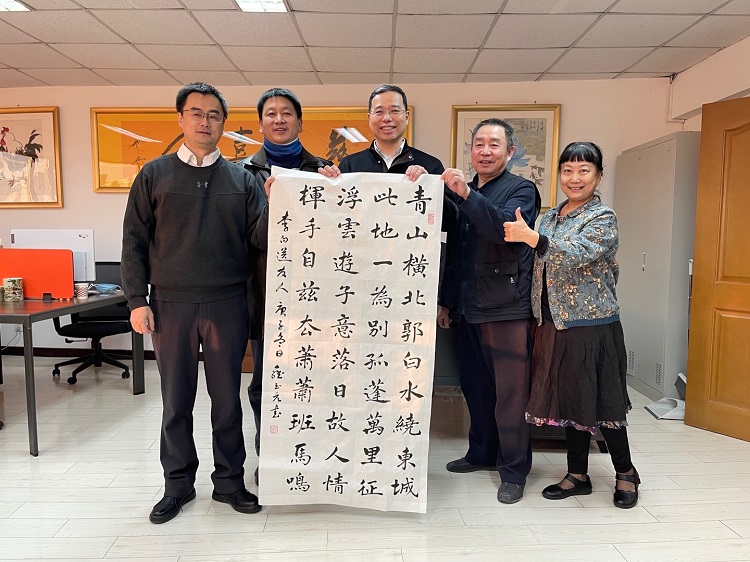 青山橫北郭白水繞東城
此地一為別孤蓬萬里征
浮雲遊子意落日故人情
揮手自茲去蕭蕭班馬鳴
李白送友人 庚子